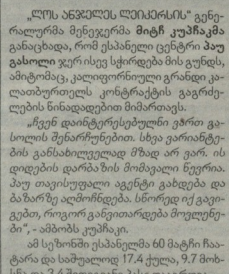 "ᲚᲝᲡ ᲐᲜᲯᲔᲚᲔᲡ ᲚᲔᲘᲙᲔᲠᲡᲘᲡ" გენე-
რალურმა მენეჯერმა მიტჩ კუპჩაკმა
განაცხადა, რომ ესპანელი ცენტრი პაუ
გასოლი ჯერ ისევ სჭირდება მის გუნდს,
ამიტომაც, კალიფორნიული გრანდი კა-
ლათბურთელს კონტრაქტის გაგრძე-
ლების წინადადებით მიმართავს.
„ჩვენ დაინტერესებულნი ვართ გა-
სოლის შენარჩუნებით. სხვა ვარიანტე-
ბის განსახილველად მზად არ ვარ. ის
დიდების დარბაზის მომავალი წევრია.
პაუ თავისუფალი აგენტი გახდება და
ბაზარზე აღმოჩნდება. სწორედ იქ გავი-
გებთ, როგორ განვითარდება მოვლენე-
ბი", - ამბობს კუპჩაკი.
ამ სეზონში ესპანელმა 60 მატჩი ჩაა-
ტარა და საშუალოდ 17.4 ქულა, 9.7 მოხ-